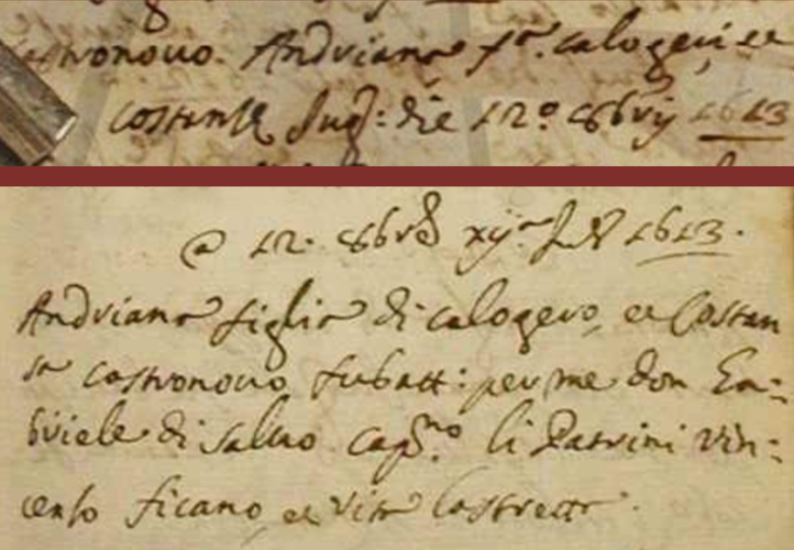 castronovo. Andriano f.º Calogeri et
Costanse Jug: die 12.º 8bris 1613
@ 12. 8bre xij.e Ind 1613.
Andriano figlio di calogero, et Costan
sa castronovo fu batt: per me don Ga:
briele di Salvo cap.no li Patrini vin:
censo ficano, et Vita Lostretto.